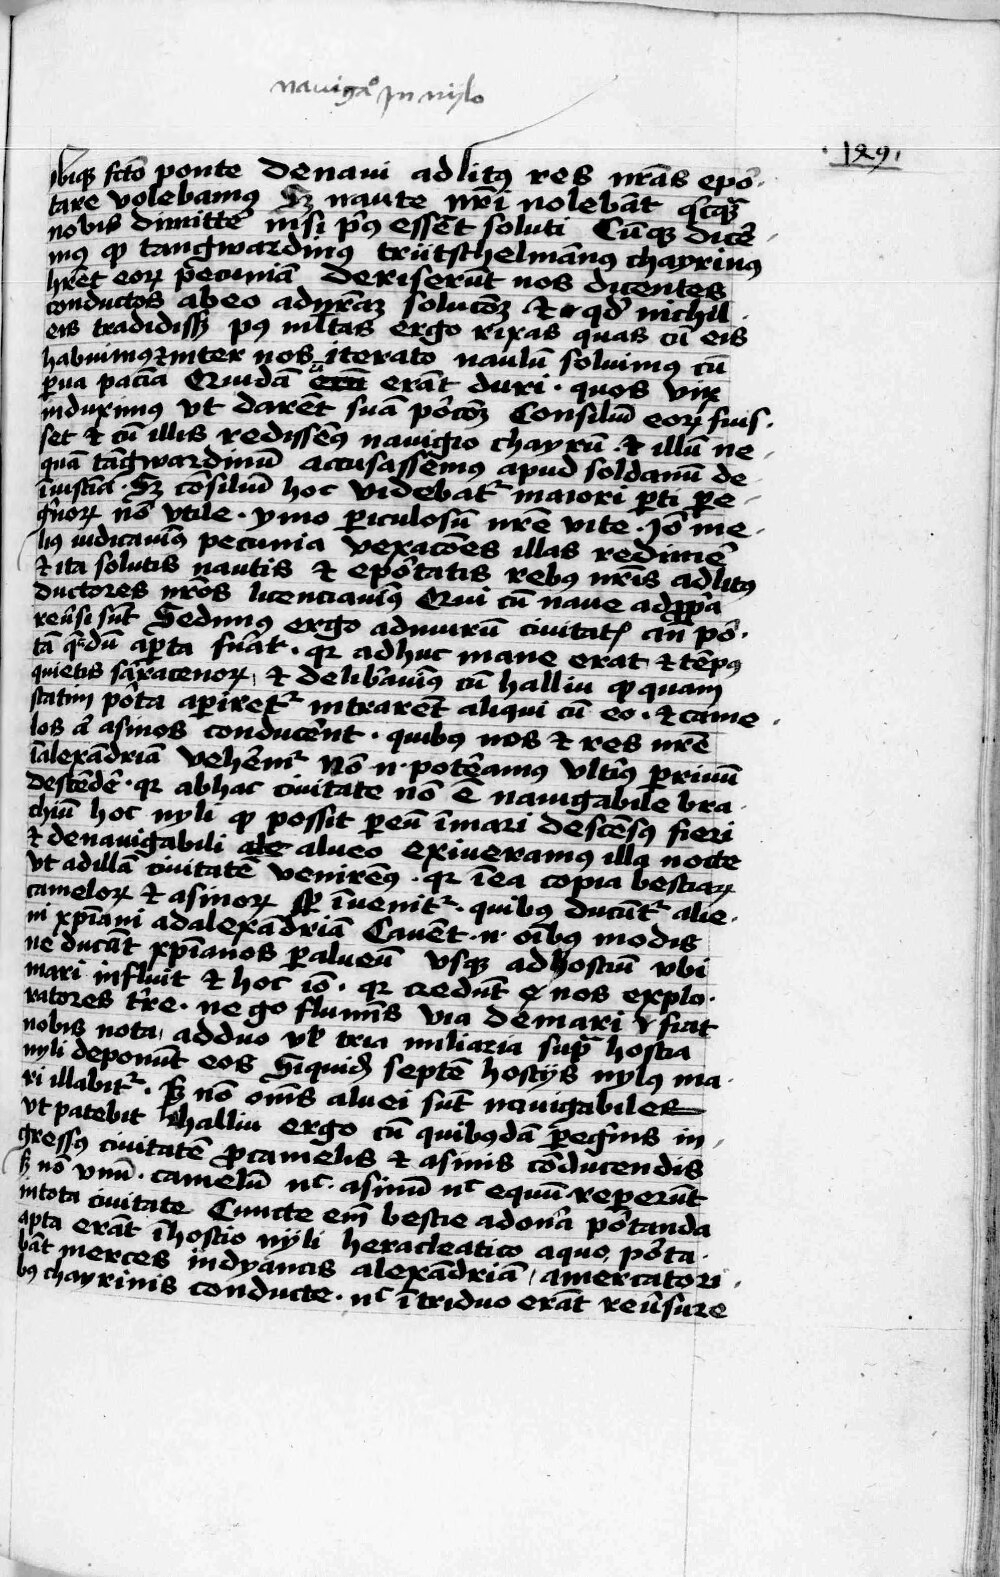 nauigaº In nijlo
129.
Ibiqȝ fcto ponte de naui ad litꝰ res nr̄as epōr
tare volebamus Sȝ naute nr̄i nolebāt qͥcqȝ
nobis dimittē nisi p̄ꝰ essēt soluti Cūqȝ dicē
mꝰ qͩ tangwardinus trützschelmānus chayrinus
hr̄et eoꝝ pecuniā deriserūt nos dicentes
conductos ab eo ad nr̄aȝ solucōȝ et qd nichil
eis tradidissȝ pꝰ mltas ergo rixas quas cū eis
habuimꝰ et inter nos iterato naulū soluimꝰ cū
pͣua paciā Quidā erāt duri · quos vix
induximus vt darēt suā pōrcōȝ Consiliū eoꝝ fuis
set et cū illis redissēꝰ nauigio chayrū · et illū ne
quā tāgwardinū accusassēmus apud soldanū de
īiusticia · Sȝ cōsiliū hoc videbatͬ maiori pͣti pere
gͥnoꝝ nō vtile · ymo periculosū nr̄e vite · Jō me
liꝰ iudicauimꝰ pecunia vexacōes illas redimē
et ita solutis nautis et epōrtatis rebꝰ nr̄is ad litꝰ
ductores nr̄os licenciauimꝰ Qui cū naue ad pp̄a
reūsi sūt Sedimus ergo ad murū ciuitatꝭ an̄ pōr
tā qͣdū apta fūat · qꝛ adhuc mane erat et tēpus
quietis sarracenoꝝ , et delibauimꝰ cū halliu qͩ quam
statim pōrta apiretͬ intrarēt aliqui cū eo · et came
los aͭ asinos conducēnt · quibꝰ nos et res nr̄e
ī alexādriā vehēntͬ Nō n· poteramus vltiꝰ p riuū
descēdē · qꝛ ab hac ciuitate nō ē nauigabile bra
chiū hoc nyli qͩ possit p eū ī mari descēsꝰ fieri
et de nauigabili alueo exiueramus illa nocte
vt ad illā ciuitatē venirēꝰ · qꝛ ī ea copia bestiaꝝ
cameloꝝ et asinoꝝ sp īuenitͬ · quibꝰ ducūtͬ alie
ni xp̄iani ad alexādriā Cauēt · n· oībꝰ modis
ne ducāt xp̄ianos p alueū vsqȝ ad hostiū vbi
mari influit et hoc iō · qꝛ credūt nos explo
ratores tr̄e · ne ḡo flumīs via de mari fiat
nobis nota , ad duo vl̓ tria miliaria supͣ hostia
nyli deponūt eos Siquidē septē hostijs nylꝰ ma
ri illabitͬ · sȝ nō om̄s aluei sūt nauigabiles
vt patebit halliu ergo cū quibꝰdā pegͥnis in
gressꝰ ciuitatē pro camelis et asinis cōducendis
sȝ nō vnū · camelū nͨ · asinū nͨ equū reperūt
in tota ciuitate Cuncte em̄ bestie ad oͤra pōrtanda
apta erāt ī hostio nyli heracleatico a quo pōrta
bāt merces indyancis alexādriā , a mercatori
bꝰ chayrinis conducte · nͨ ī triduo erāt reūsure